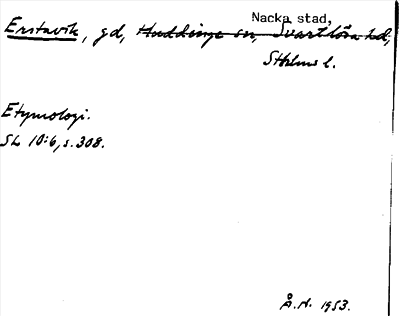 Nacka stad,
Erstavik, gd, Huddinge sn, Svartlösa hd,
Sthlms l.
Etymologi.
SL 10:6, s. 308.
Å.N. 1953.